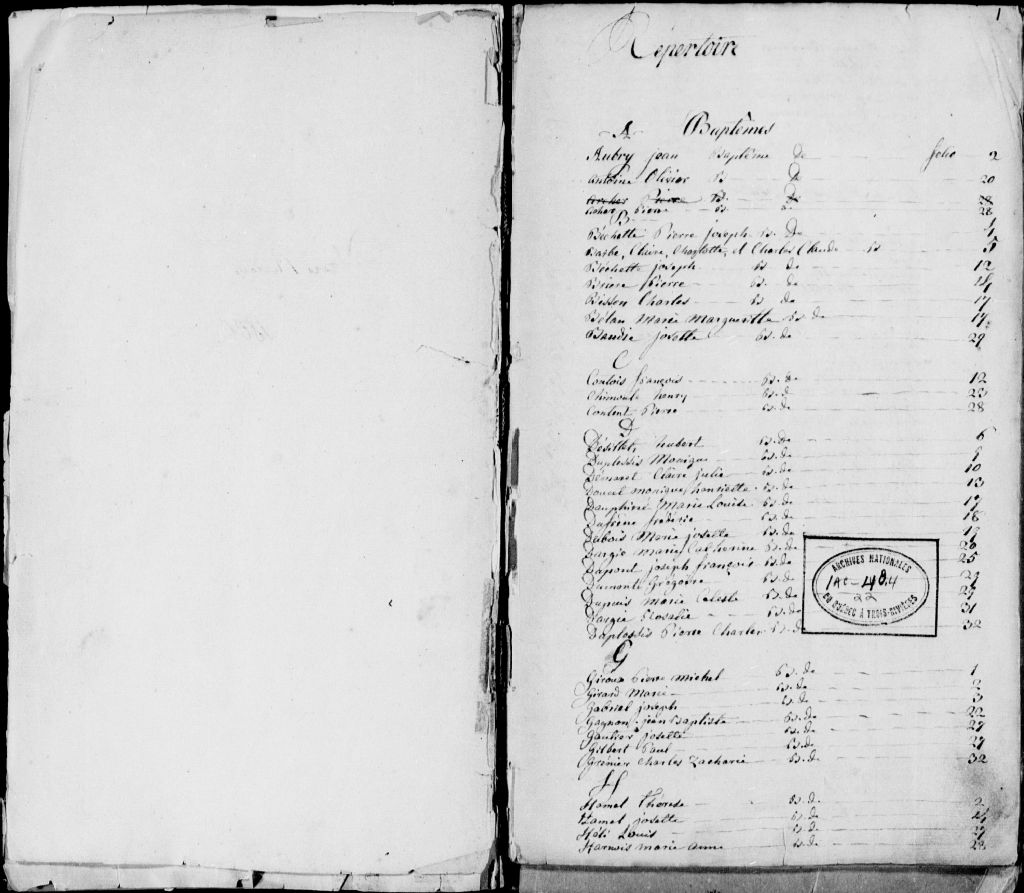 1
Répertoire
A Baptêmes
Aubry Jean Baptême de folio 2
Antoine Olivier B. de 20
Archer Pierre B. de 28
Archer Pierre B. de 28
B
Béchette Pierre Joseph B. de 1
Barbe, Claire, Charlotte, et Charles Claude B 5
Béchette Joseph B de 12
Briere Pierre B. de 14
Bisson Charles B de 17
Bélan Marie Margueritte B de 17
Baudie Josette B. de 29
C
Contois françois B. de 12
henry B. de 23
Content Pierre B. de 28
D
Désillets hubert B. de 6
Duplessis Monique B. de
Démaret Claire Julie B. de 10
Doucet monique henriette B. de 13
Dauphiné Marie Louise B. de 17
Dufresne B. de 18
Dubois Marie Josette B. de 19
Dargie Marie Catherine B. de 20
Dupont Joseph françois B. de 25
Dumonte Grégoire B. de
Dupuis marie Celeste B. de 27
Dargie Rosalie B. de 31
Duplessis Pierre Charles B. de 32
ARCHIVES NATIONALES
IAC-484
22
DU QUÉBEC À TROIS-RIVIÈRES
G
Giroux Pierre Michel B. de 1
Girard Marie B. de 2
Gabriel Joseph B. de 3
Gagnon Jean Baptiste B. de 22
Gautier Josette B. de 27
Gilbert Paul B. de 27
Grenier Charles Zacharie B. de 32
H
Hamel thérese B. de 2
Hamel Josette B. de
Louis B. de
marie anne B. de 28